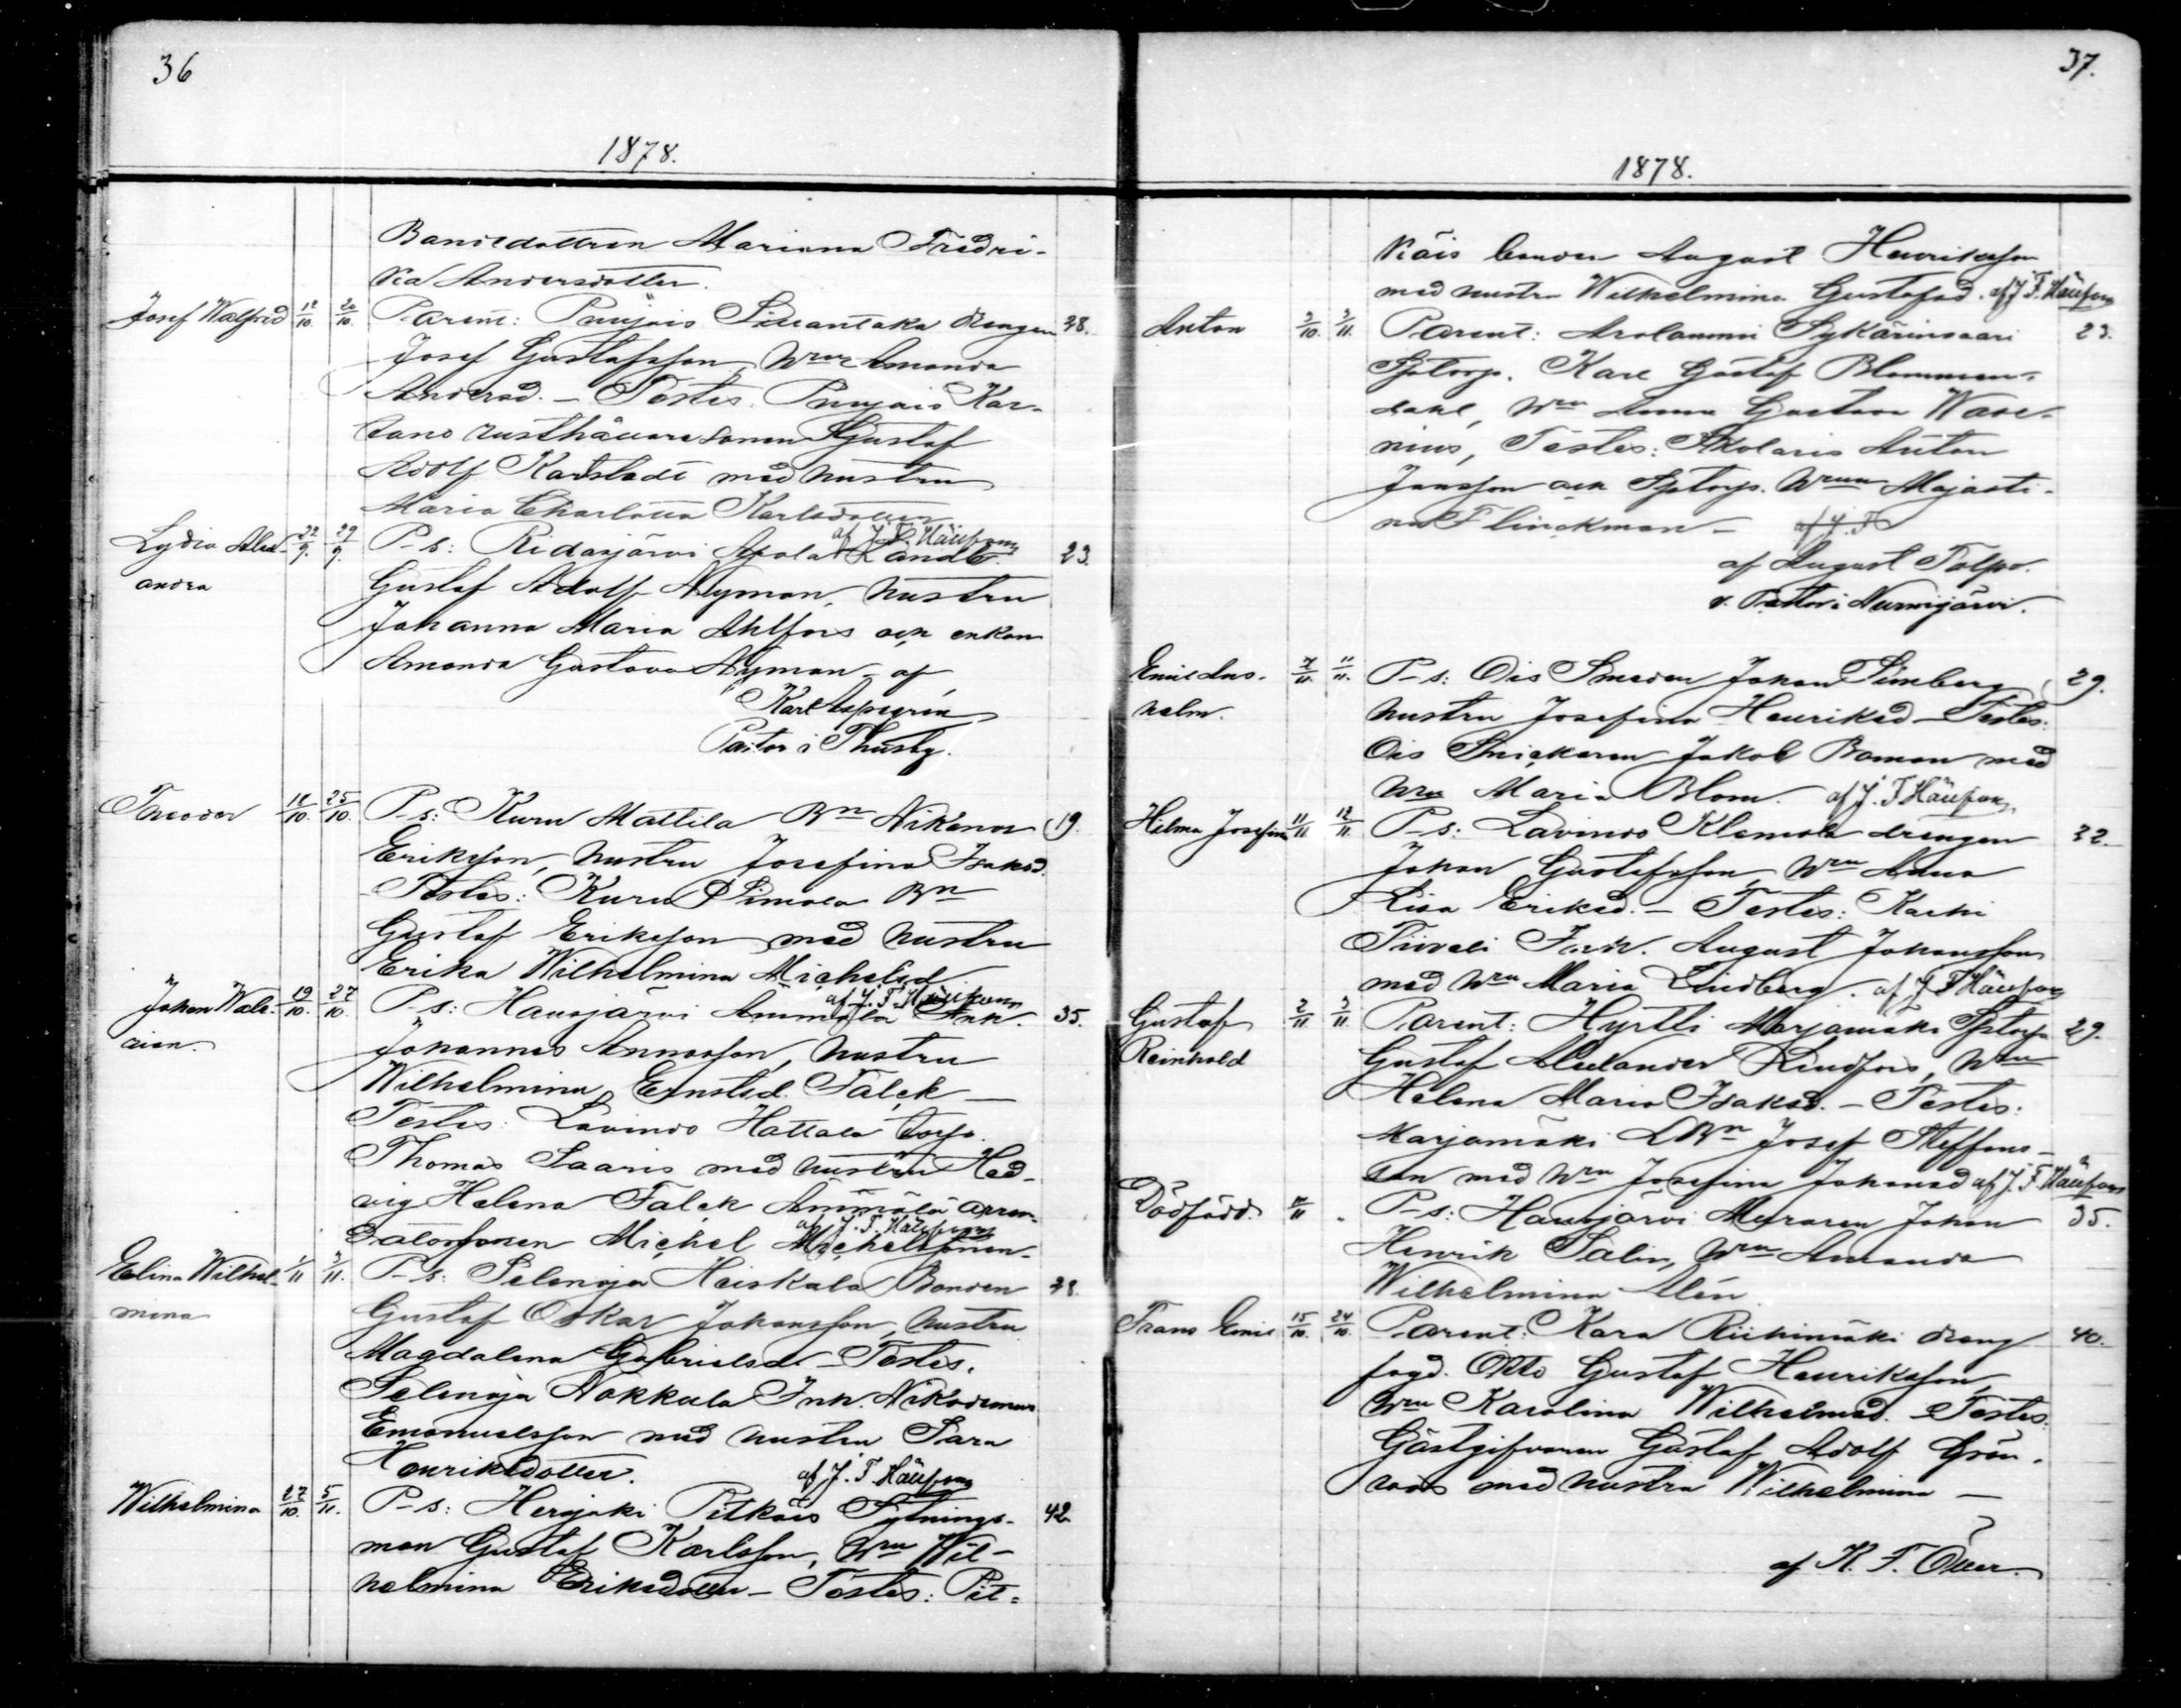 36
1878.
Bondedottren Mariana Fredri-
ka Andersdotter.
Josef Walfrid 12/10. 20/10. Parent: Puujois drengen 28.
Josef Gustafsson, Hru Amanda
Andersd. – Testes. Puujois Kar-
tano rusthållare sonen Gustaf
Adolf Karlstedt med hustru
Maria Charlotta Karlsdotter
af J. F.
Lydia Alex- 22/9. 29/9. P-s: Ridasjärvi 23.
andra
Gustaf Adolf Nyman, hustru
Johanna Maria Ahlfors och enkan
Amanda Gustava Nyman – af
Karl Aspegrén
Pastor i Thusby.
Theodor 18/10. 25/10. P-s: Kuru Mattila Bn Nikanor 19.
Eriksson, hustru Josefina Isaksd.
– Testes: Kuru Simola Bn
Gustaf Eriksson med hustru
Erika Wilhelmina Michelsd.
af J. F.
Johan Wale- 19/10. 27/10. P-s: Hausjärvi Ämmälä Ink. 35.
rian.
Johannes Annasson, hustru
Wilhelmina Ernstsd. Falck –
Testes: Lavinto Hattala torp.
Thomas Saaris med hustru Hed-
vig Helena Falck Ämmälä arren-
datorsonen Michel
af J. F.
Elina Wilhel- 1/11 3/11. P-s: Selenoja Heiskala Bonden 28.
mina
Gustaf Oskar Johansson, hustru
Magdalena Gabrielsd. – Testes.
Selenoja Nokkala Ink. Nikodemus
Emanuelsson med hustru Sara
Henriksdotter. af J. F.
Wilhelmina 27/10. 5/11. P-s: Herajoki Pitkäis Sytnings- 42
man Gustaf Karlsson, Hru Wil-
helmina Eriksdotter – Testes: Pit-
37.
1878.
käis bonden August Henriksson
med hustru Wilhelmina Gustafsd. af J. F.
Anton 3/10. 3/11. Parent: Arolammi Sykärinsaari 23.
Sptorp. Karl Gustaf Blommen-
dahl, Hru Anna Gustava Wase-
nius, Testes: Skolaris Anton
Jansson och Sptorp. Hrun Majasti-
na Flinckman – af J. F
af August Talpo.
v. Pastor i Nurmijärvi.
Emil Ans- 7/11. 11/11. P-s: Ois Smeden Johan Simberg 29.
helm.
hustru Josefina Henriksd – Testes:
Ois Snickaren Jakob Boman med
Hru Maria Blom. af J. F.
Hilma Josefina 11/11. 12/11. P-s: Lavinto Klemola drengen 32.
Johan Gustafsson, Hru Anna
Lisa Eriksd. – Testes: Karhi
Ink. August Johansson
med Hru Maria Lindberg. af J. F.
Gustaf 2/11. 3/11. Parent: Hyrtti Marjamäki Sptorp 29.
Reinhold
Gustaf Alexander Lindfors, Hru
Helena Maria Isaksd. – Testes:
Marjamäki LBn Josef Steffans-
son med Hru Josefina Johansd af J. F.
Dödfödd. P-s: Hausjärvi Muraren Johan 35.
Henrik Salin, Hru Amanda
Wilhelmina Alén
Frans Emil 15/10. 24/10. Parent: Kara Riihimäki dreng 40.
fogd. Otto Gustaf Henriksson,
Hru Karolina Wilhelmsd. – Testes:
Gästgifvaren Gustaf Adolf Grön-
roos med hustru Wilhelmina –
af K. F.